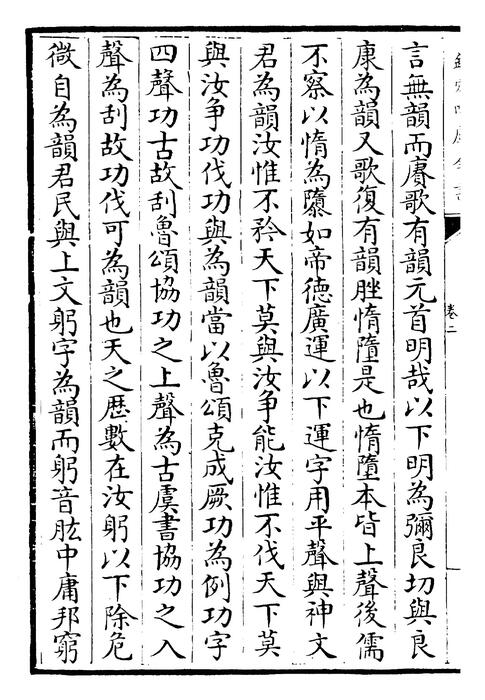 言無韻而賡歌有韻元首明哉以下明為彌良切與良
康為韻又歌復有韻脞惰墮是也惰墮本皆上聲後儒
不察以惰為隳如帝德廣運以下運字用平聲與神文
君為韻汝惟不矜天下莫與汝争能汝惟不伐天下莫
與汝争功伐功與為韻當以魯頌克成厥功為例功字
四聲功古故刮魯頌協功之上聲為古虞書協功之入
聲為刮故功伐可為韻也天之厯數在汝躬以下除危
微自為韻君民與上文躬字為韻而躬音肱中庸邦窮
卷二